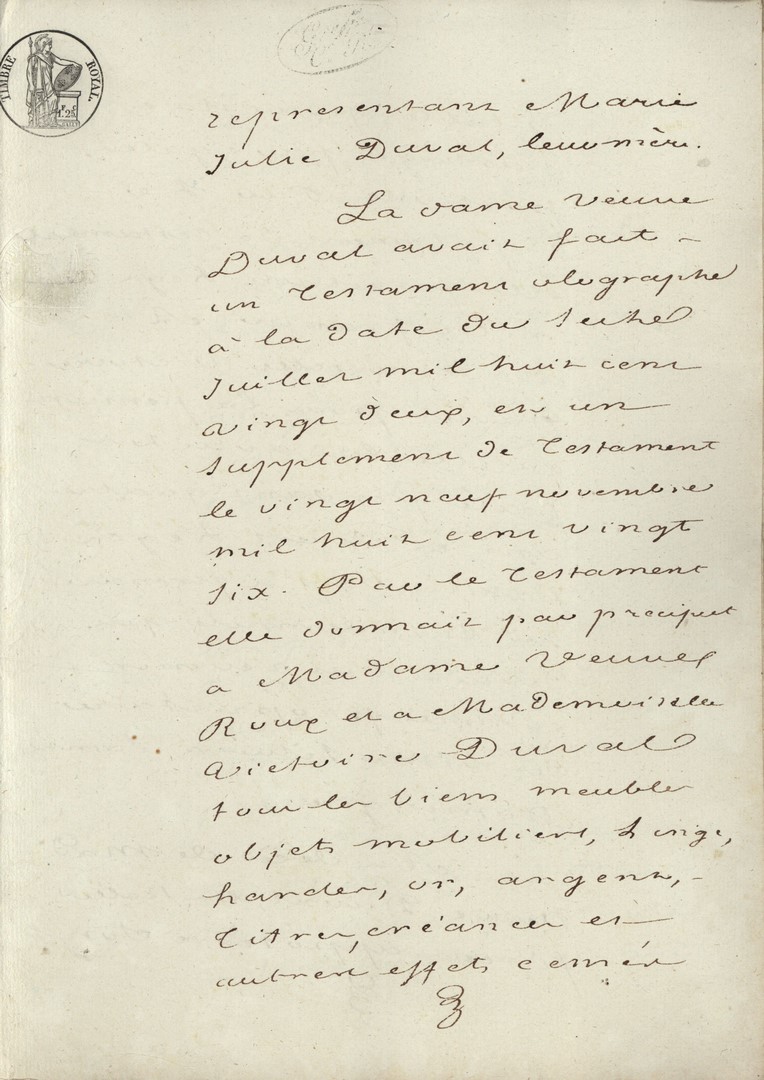 TIMBRE ROYAL.
1F. 25c
representant Marie
Julie Duval, leur mère.
La dame veuve
Duval avait fait
un Testament olographe
à la Date du seize
Juillet mil huit cent
vingt deux, et un
supplement de Testament
le vingt neuf novembre
mil huit cent vingt
six. Par le Testament
elle donnait par preciput
a Madame Veuve
Roux et a Mademoiselle
Victoire Duval
tous les biens meubles
objets mobiliers, Linge,
hardes, or, argent,
Titres, créances et
autres effets censés